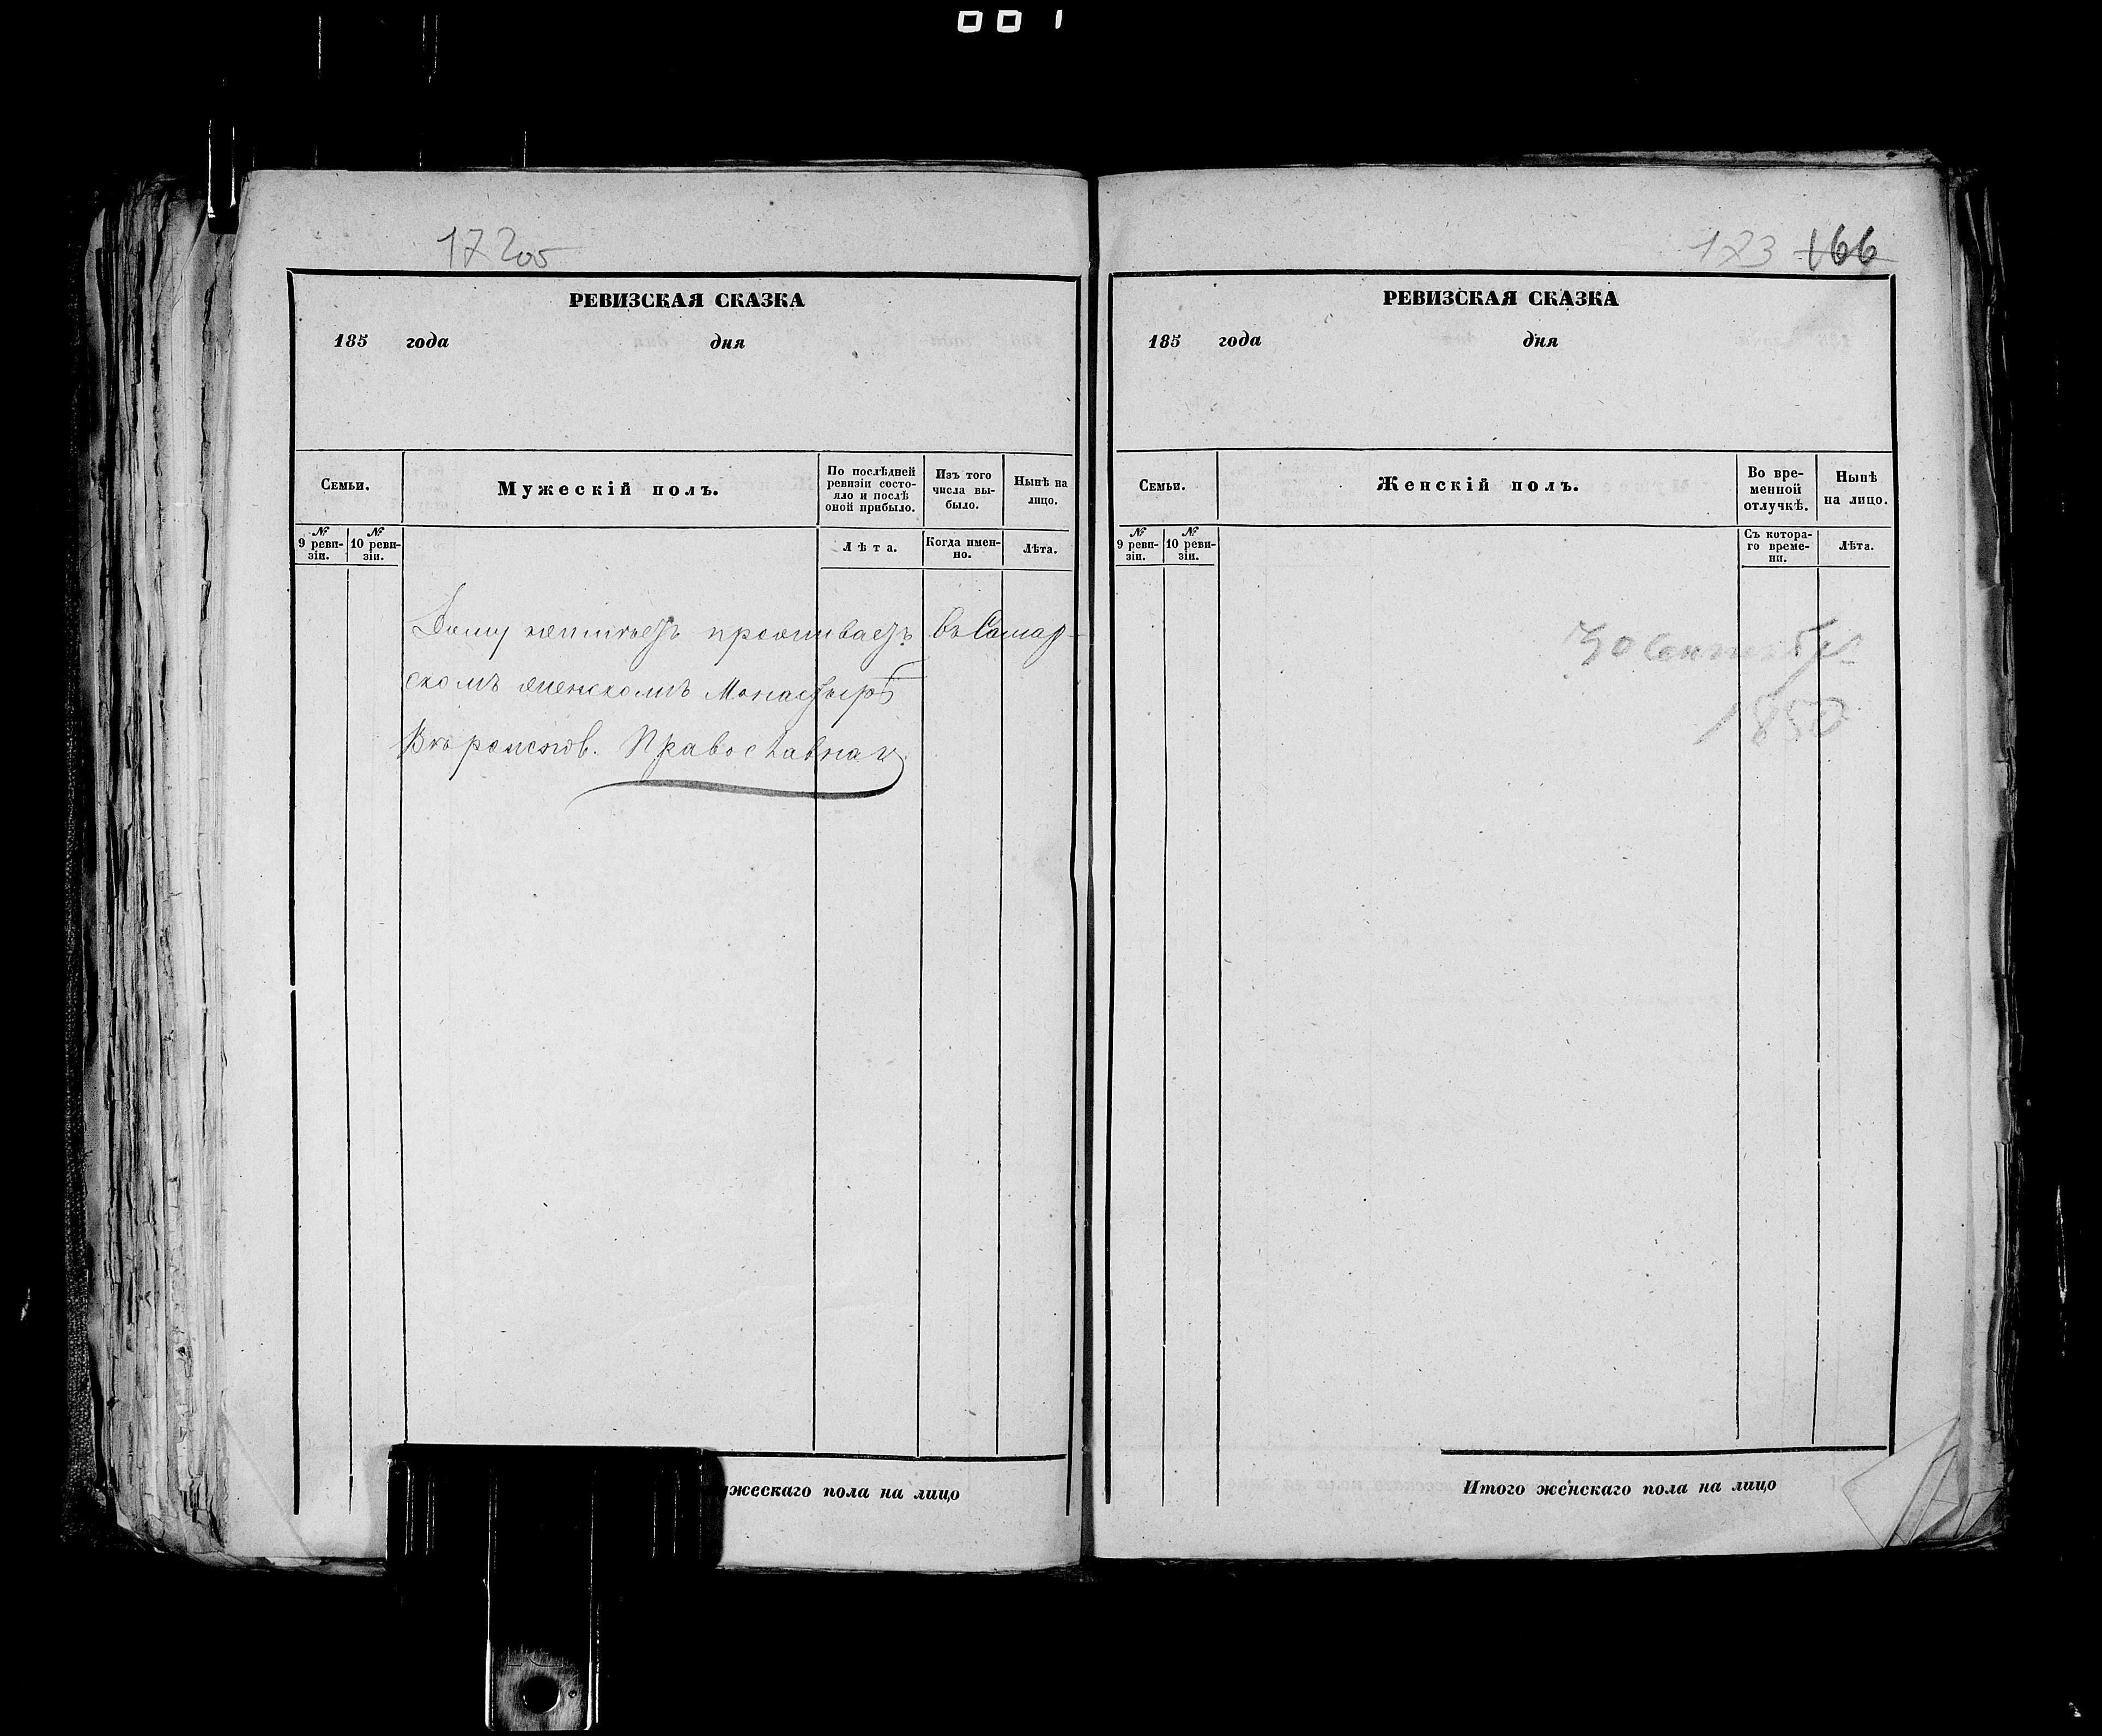 001
17 205
РЕВИЗСКАЯ СКАЗКА
185 года дня
Семьи.
Мужескій полъ.
По послѣдней ревизіи состояло и послѣ оной прибыло.
Изъ того числа выбыло.
Нынѣ на лицо.
№ 9 ревизіи.
№ 10 ревизіи.
Лѣта.
Когда именно.
Лѣта.
Дому неимѣетъ проживаетъ въ Самар-
скомъ женскомъ Монастырѣ
Вѣроисповѣд. Православная
ужескаго пола на лицо
173 166
РЕВИЗСКАЯ СКАЗКА
185 года дня
Семьи.
Женскій полъ.
Во временной отлучкѣ.
Нынѣ на лицо.
№ 9 ревизіи.
№ 10 ревизіи.
Съ котораго времени.
Лѣта.
30 Сентября
1850
Итого женскаго пола на лицо